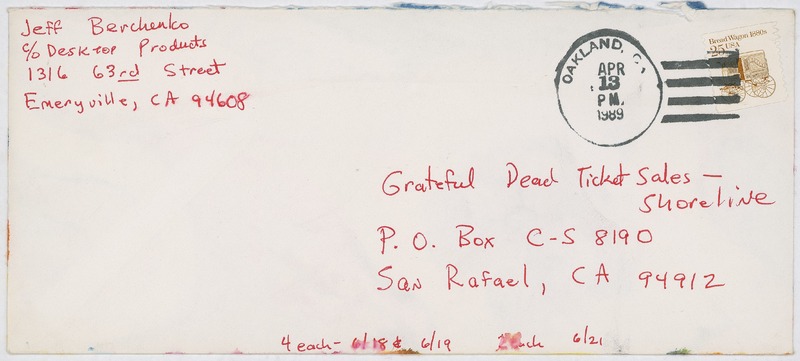 Jeff Berchenko
c/o Desktop Products
1316 63rd Street
Emeryville, CA 94608
OAKLAND, CA
APR
13
PM
1989
Bread Wagon 1880s
25 USA
Grateful Dead Ticket Sales —
Shoreline
P. O. Box C-S 8190
San Rafael, CA 94912
4 each - 6/18 & 6/19 each 6/21